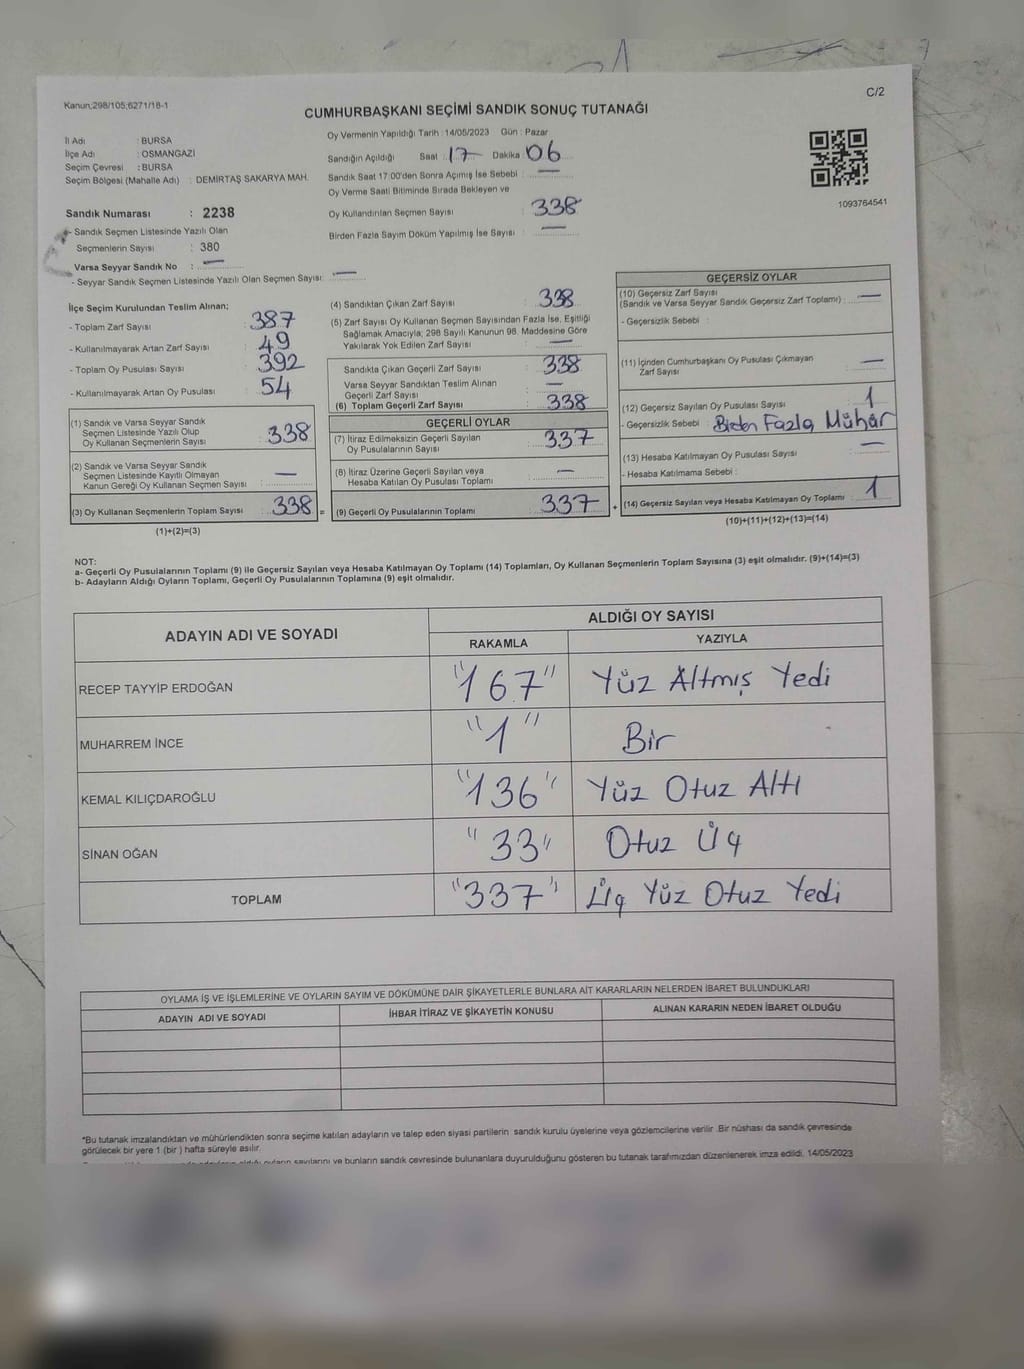 Kanun;298/105;6271/18-1
C/2
CUMHURBAŞKANI SEÇİMİ SANDIK SONUÇ TUTANAĞI
İl Adı : BURSA
İlçe Adı : OSMANGAZİ
Seçim Çevresi : BURSA
Seçim Bölgesi (Mahalle Adı) : DEMİRTAŞ SAKARYA MAH.
Oy Vermenin Yapıldığı Tarih : 14/05/2023 Gün : Pazar
Sandığın Açıldığı Saat : 17 Dakika : 06
Sandık Saat 17:00'den Sonra Açımış İse Sebebi : —
Oy Verme Saati Bitiminde Sırada Bekleyen ve
Oy Kullandırılan Seçmen Sayısı : 338
Birden Fazla Sayım Döküm Yapılmış İse Sayısı : —
1093764541
Sandık Numarası : 2238
- Sandık Seçmen Listesinde Yazılı Olan
Seçmenlerin Sayısı : 380
Varsa Seyyar Sandık No : —
- Seyyar Sandık Seçmen Listesinde Yazılı Olan Seçmen Sayısı: —
İlçe Seçim Kurulundan Teslim Alınan;
- Toplam Zarf Sayısı : 387
- Kullanılmayarak Artan Zarf Sayısı : 49
- Toplam Oy Pusulası Sayısı : 392
- Kullanılmayarak Artan Oy Pusulası : 54
(1) Sandık ve Varsa Seyyar Sandık
Seçmen Listesinde Yazılı Olup
Oy Kullanan Seçmenlerin Sayısı : 338
(2) Sandık ve Varsa Seyyar Sandık
Seçmen Listesinde Kayıtlı Olmayan
Kanun Gereği Oy Kullanan Seçmen Sayısı : —
(3) Oy Kullanan Seçmenlerin Toplam Sayısı : 338 =
(1)+(2)=(3)
(4) Sandıktan Çıkan Zarf Sayısı : 338
(5) Zarf Sayısı Oy Kullanan Seçmen Sayısından Fazla İse, Eşitliği
Sağlamak Amacıyla; 298 Sayılı Kanunun 98. Maddesine Göre
Yakılarak Yok Edilen Zarf Sayısı : —
Sandıkta Çıkan Geçerli Zarf Sayısı : 338
Varsa Seyyar Sandıktan Teslim Alınan
Geçerli Zarf Sayısı : —
(6) Toplam Geçerli Zarf Sayısı : 338
GEÇERLİ OYLAR
(7) İtiraz Edilmeksizin Geçerli Sayılan
Oy Pusulalarının Sayısı : 337
(8) İtiraz Üzerine Geçerli Sayılan veya
Hesaba Katılan Oy Pusulası Toplamı : —
(9) Geçerli Oy Pusulalarının Toplamı : 337 +
GEÇERSİZ OYLAR
(10) Geçersiz Zarf Sayısı
(Sandık ve Varsa Seyyar Sandık Geçersiz Zarf Toplamı) : —
- Geçersizlik Sebebi :
(11) İçinden Cumhurbaşkanı Oy Pusulası Çıkmayan
Zarf Sayısı : —
(12) Geçersiz Sayılan Oy Pusulası Sayısı : 1
- Geçersizlik Sebebi : Birden Fazla Mühür
(13) Hesaba Katılmayan Oy Pusulası Sayısı : —
- Hesaba Katılmama Sebebi :
(14) Geçersiz Sayılan veya Hesaba Katılmayan Oy Toplamı : 1
(10)+(11)+(12)+(13)=(14)
NOT:
a- Geçerli Oy Pusulalarının Toplamı (9) ile Geçersiz Sayılan veya Hesaba Katılmayan Oy Toplamı (14) Toplamları, Oy Kullanan Seçmenlerin Toplam Sayısına (3) eşit olmalıdır. (9)+(14)=(3)
b- Adayların Aldığı Oyların Toplamı, Geçerli Oy Pusulalarının Toplamına (9) eşit olmalıdır.
ADAYIN ADI VE SOYADI ALDIĞI OY SAYISI
RAKAMLA YAZIYLA
RECEP TAYYİP ERDOĞAN "167" Yüz Altmış Yedi
MUHARREM İNCE "1" Bir
KEMAL KILIÇDAROĞLU "136" Yüz Otuz Altı
SİNAN OĞAN "33" Otuz Üç
TOPLAM "337" Üç Yüz Otuz Yedi
OYLAMA İŞ VE İŞLEMLERİNE VE OYLARIN SAYIM VE DÖKÜMÜNE DAİR ŞİKAYETLERLE BUNLARA AİT KARARLARIN NELERDEN İBARET BULUNDUKLARI
ADAYIN ADI VE SOYADI İHBAR İTİRAZ VE ŞİKAYETİN KONUSU ALINAN KARARIN NEDEN İBARET OLDUĞU
*Bu tutanak imzalandıktan ve mühürlendikten sonra seçime katılan adayların ve talep eden siyasi partilerin sandık kurulu üyelerine veya gözlemcilerine verilir .Bir nüshası da sandık çevresinde
görülecek bir yere 1 (bir ) hafta süreyle asılır.
aldığı oyların sayılarını ve bunların sandık çevresinde bulunanlara duyurulduğunu gösteren bu tutanak tarafımızdan düzenlenerek imza edildi. 14/05/2023